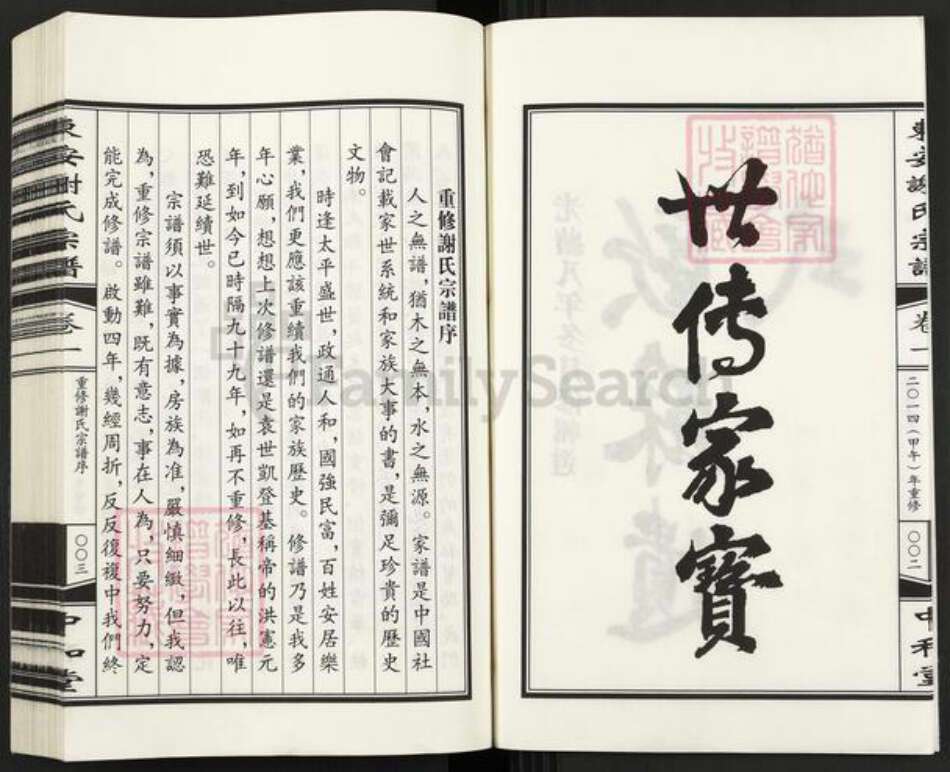 東安謝氏宗譜
卷一
二〇一四(甲午)年重修
〇〇二
中和堂
世传家寳
重修謝氏宗譜序
人之無譜,猶木之無本,水之無源。家譜是中國社
會記載家世系統和家族大事的書,是彌足珍貴的歷史
文物。
時逢太平盛世,政通人和,國強民富,百姓安居樂
業,我們更應該重續我們的家族歷史。修譜乃是我多
年心願,想想上次修譜還是袁世凱登基稱帝的洪憲元
年,到如今已時隔九十九年,如再不重修,長此以往,唯
恐難延續世。
宗譜須以事實為據,房族為准,嚴慎細緻,但我認
為,重修宗譜雖難,既有意志,事在人為,只要努力,定
能完成修譜。啟動四年,幾經周折,反反復複中我們終
東安謝氏宗譜
卷一
重修謝氏宗譜序
〇〇三
中和堂
FamilySearch